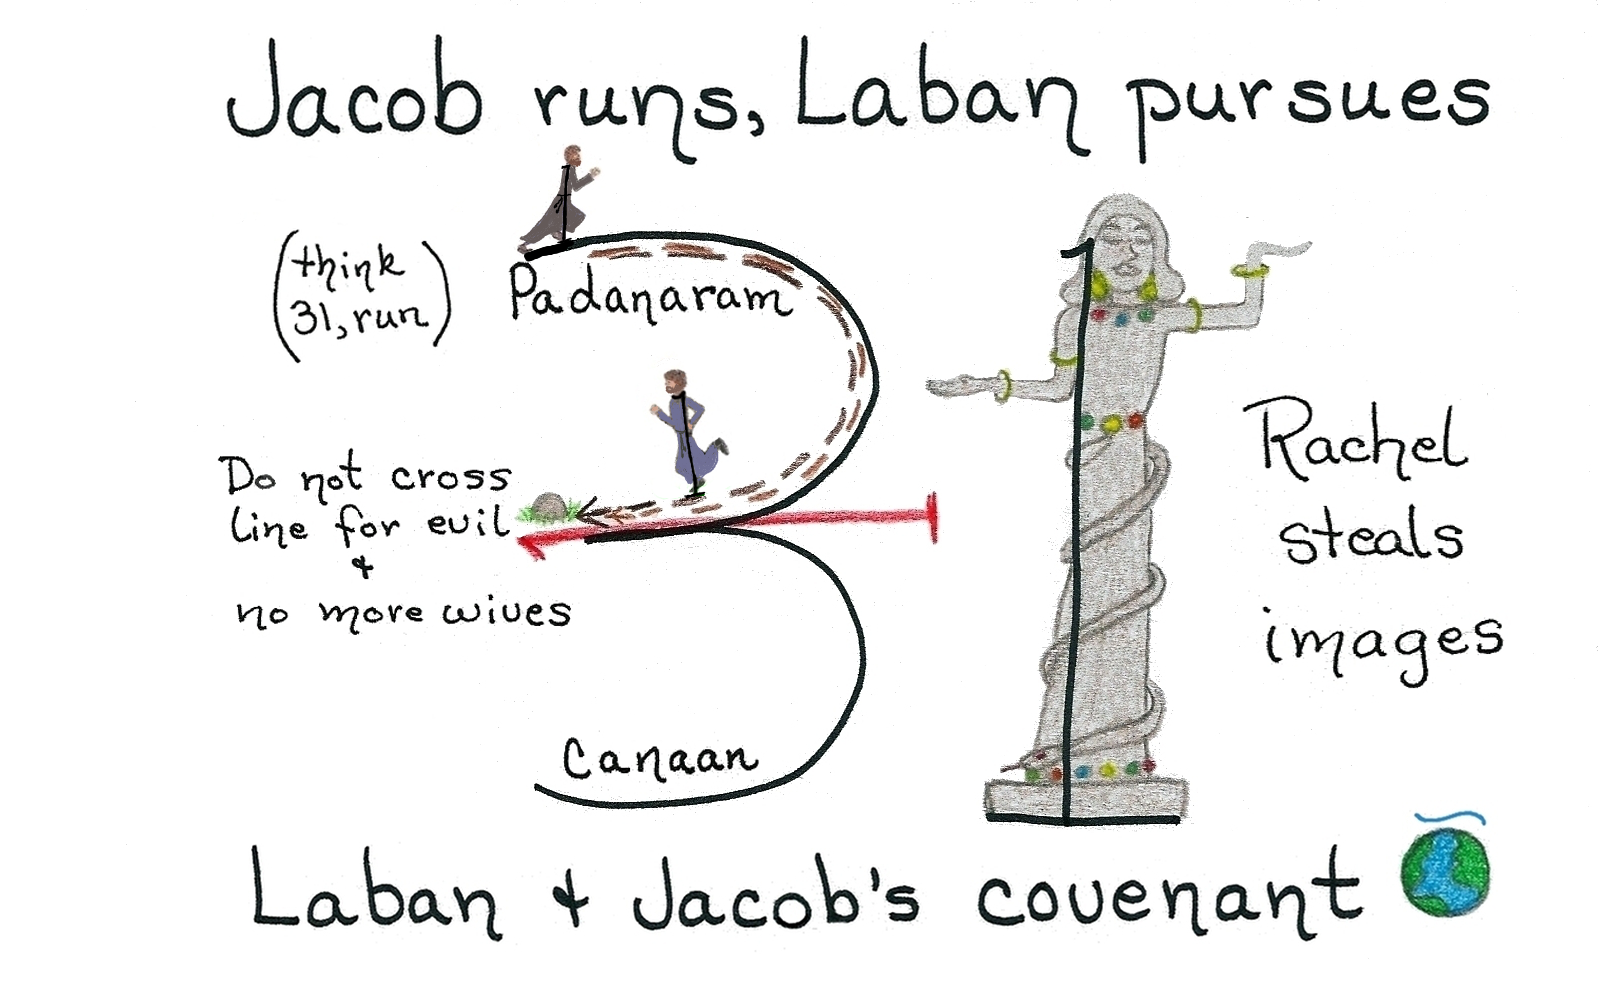 Jacob runs, Laban pursues
(think
31, run)
Padanaram
Do not cross
line for evil
&
no more wives
Canaan
31
Rachel
steals
images
Laban & Jacob's covenant